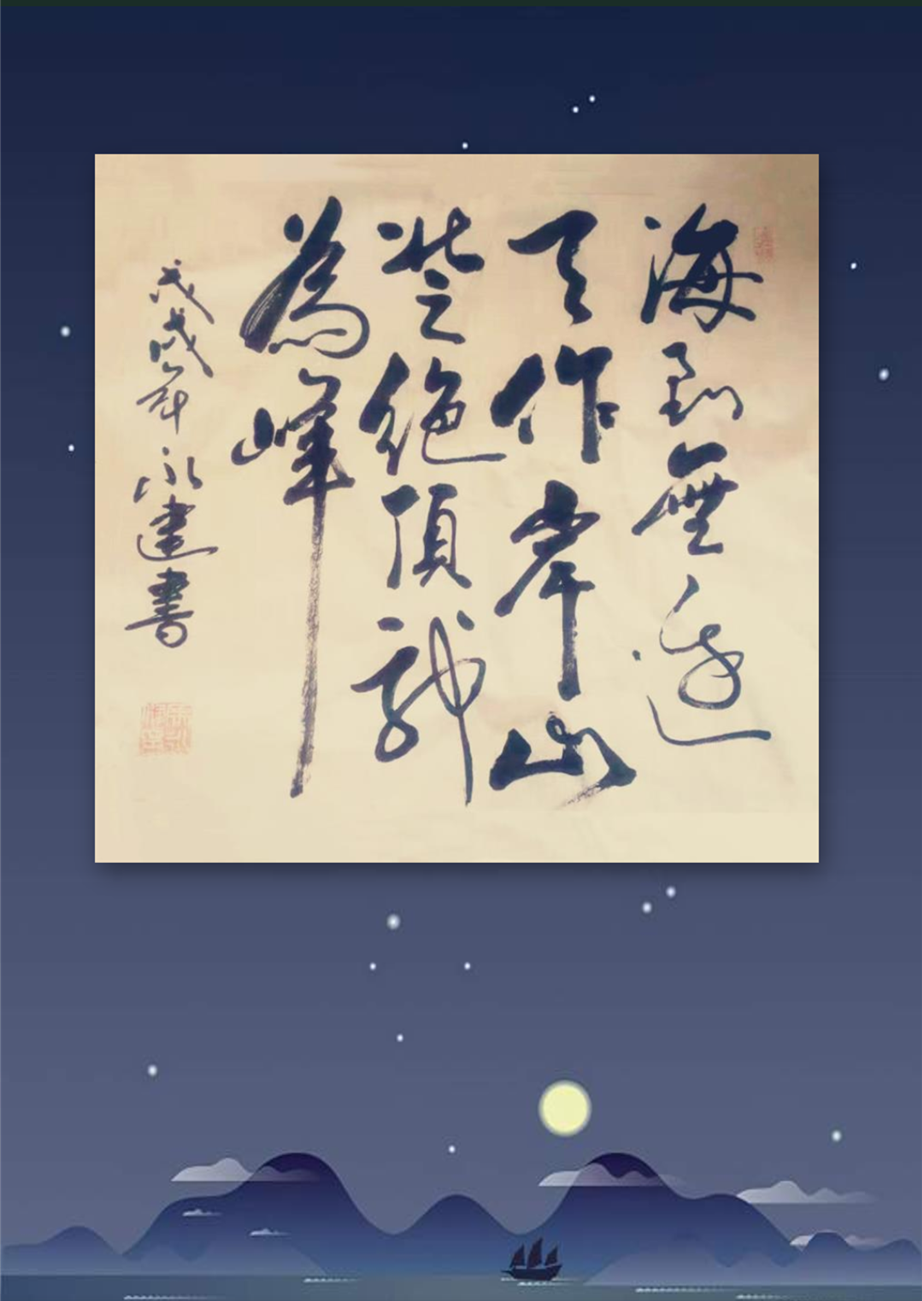 海到無邊
天作岸山
登絶頂我
為峰
戊戌年永建書